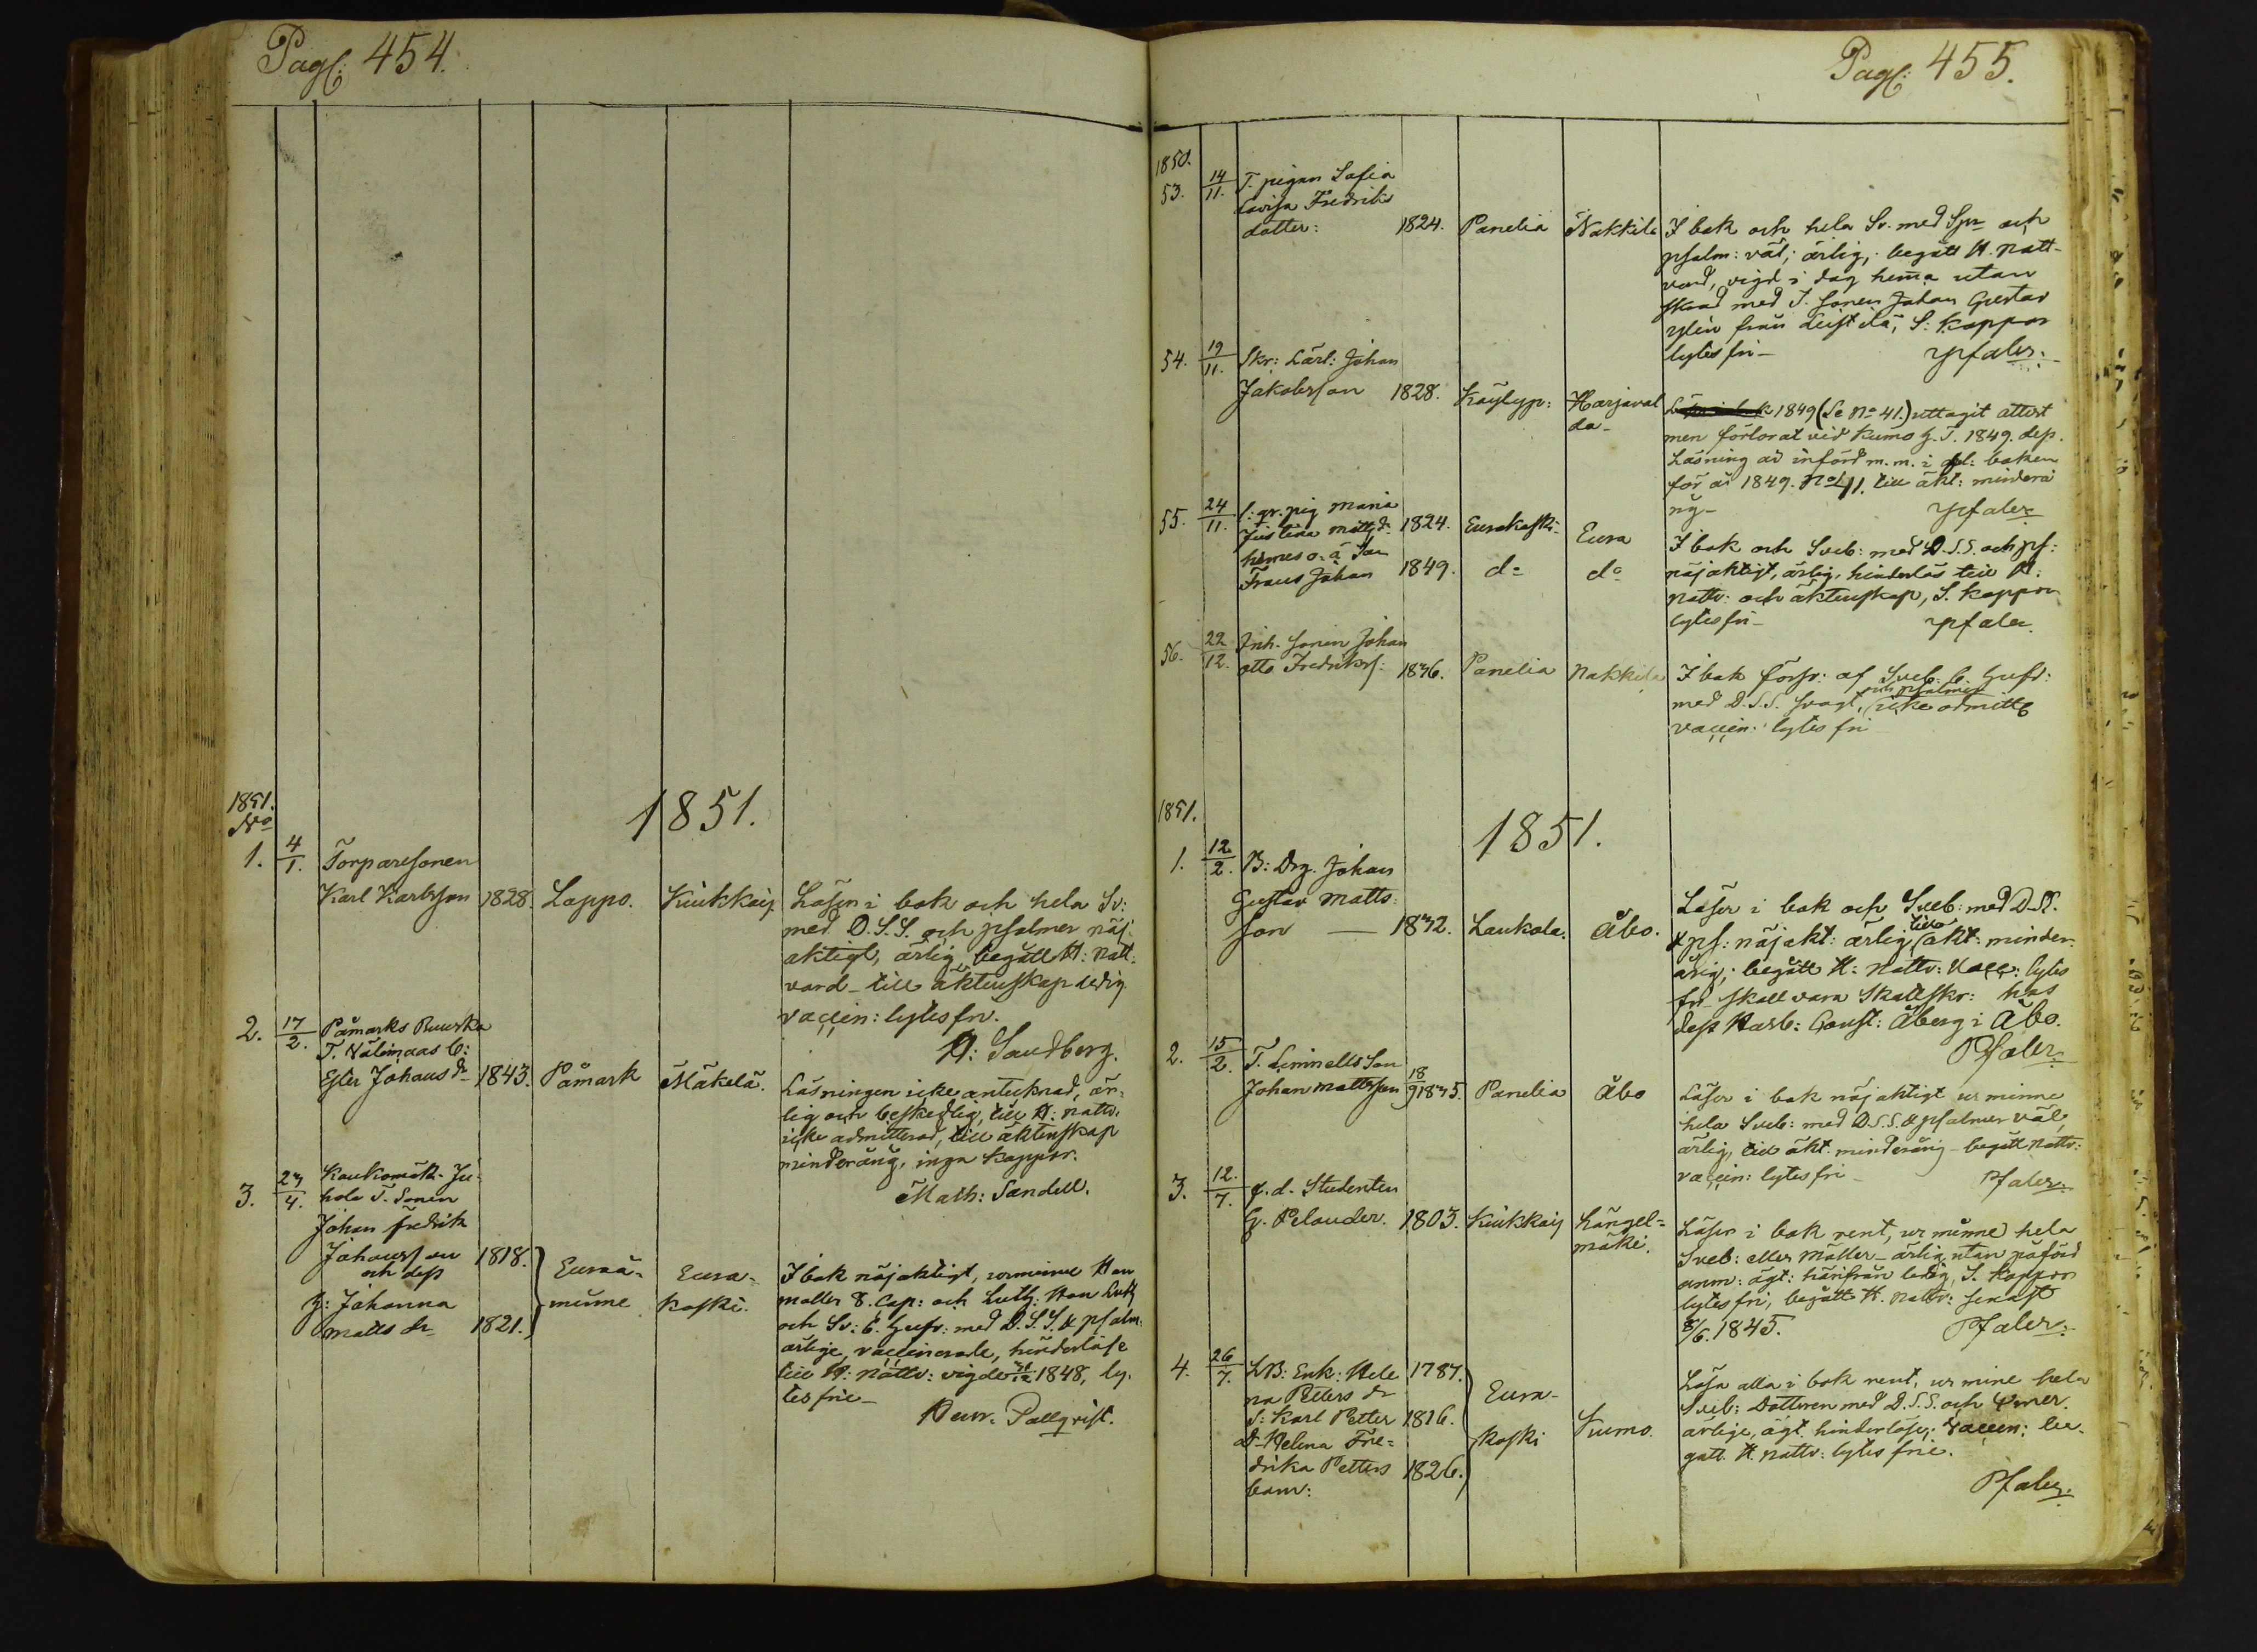 Pag: 454.
1851.
1851.
No
1. 4/1. Torparesonen
Karl Karlsson 1828. Lappo. Kiukkais Läser i bok och hela Sv:
med D.S.S. och psalmer nöj-
aktigt, ärlig, begått H: Natt-
vard - till äktenskap ledig
vaccin: lytesfri.
H: Sandberg.
2. 17/2. Påmarks
T.
Ester Johans dr 1843. Påmark Mäkelä. Läsningen icke antecknad, är-
lig och beskedlig, till H: nattv.
icke admitterad, till äktenskap
minderårig, inga koppor.
Math: Sandell.
3. 23/4.
T. Sonen
Johan Fredrik
Johansson 1818.
och dess
h: Johanna
Matts dr 1821.
Euraå-
minne
Eura-
koski.
I bok nöjaktigt, urminne Han
maller 8. Cap: och Luth: Hon Luth
och Sv: 6. Hufv: med D.S.S. & psalm:
ärlige, vaccinerade, hinderlöse
till H: Nattv: vigde 1848, ly-
tesfrie -
Pallqvist.
Pag: 455.
1850.
53. 14/11. T. pigan Sofia
Lovisa Fredriks
dotter: 1824. Panelia Nakkila I bok och hela Sv. med Spr och
psalm: väl; ärlig, begått H. Natt-
vard, vigd i dag hemma utan
med T. Sonen Johan Gustav
från S: Koppor
lytesfri - Pfaler.
54. 19/11. Skr: Lärl: Johan
Jakobsson 1828. Köylyp: Harjaval
da -
1849 (Se No 41.) uttagit attest
men förlorat vid Kumo H.T. 1849. dess
Läsning är införd m.m. i boken
för år 1849. No 41. till äkt: minderå
rig - Pfaler
55. 24/11. pig Maria
Justina Matts dr 1824. Eurakoski Eura
hennes o. ä Son
Frans Johan 1849. do do
I bok och Sveb: med D.S.S. och ps:
nöjaktigt, ärlig, hinderlös till H:
nattv: och äktenskap, S. Koppor
lytesfri - Pfaler.
56. 22/12. Inh. Sonen Johan
Otto Fredriks: 1836. Panelia Nakkila I bok förfv: af Sveb: 6. Hufv:
och psalmer
med D.S.S. svagt, icke admitt
vaccin: lytesfri
1851.
1851.
1. 12/2. B: Drg. Johan
Gustav Matts:
son — 1832. Laukola. Åbo. Läser i bok och Sveb: med D.S.S.
till
& ps: nöjakt: ärlig, äkt: minder-
årig; begått H: Nattv: Vacc: lytes
fri skall vara Skattskr: hos
dess Husb: Const: Åberg i Åbo.
Pfaler
2. 15/2. T. Linnells Son
Johan Mattsson 18/9 1835. Panelia Åbo Läser i bok nöjaktigt ur minne
hela Sveb: med D.S.S. & psalmer väl,
ärlig, till äkt. minderårig - begått nattv:
vaccin: lytesfri - Pfaler.
3. 12/7. f.d. Studenten
G. Pelander. 1803. Kiukkais Längel=
mäki. Läser i bok rent, ur minne hela
Sveb: eller Mäller - ärlig utan påförd
anm: ägt: härifrån ledig, S. Koppor
lytesfri, begått H. Nattv: senast
8/6. 1845. Pfaler.
4. 26/7. LB: Enk: Hele 1787.
na Petters dr
S: Karl Petter 1816.
D Helena Fre=
drika Petters 1826.
barn:
Eura-
koski
Kumo.
Läsa alla i bok rent, ur mine hela
Sveb: Dotteren med D.S.S. och
ärlige, ägt. hinderlöse; vaccin: be-
gått H. nattv: lytesfrie.
Pfaler.